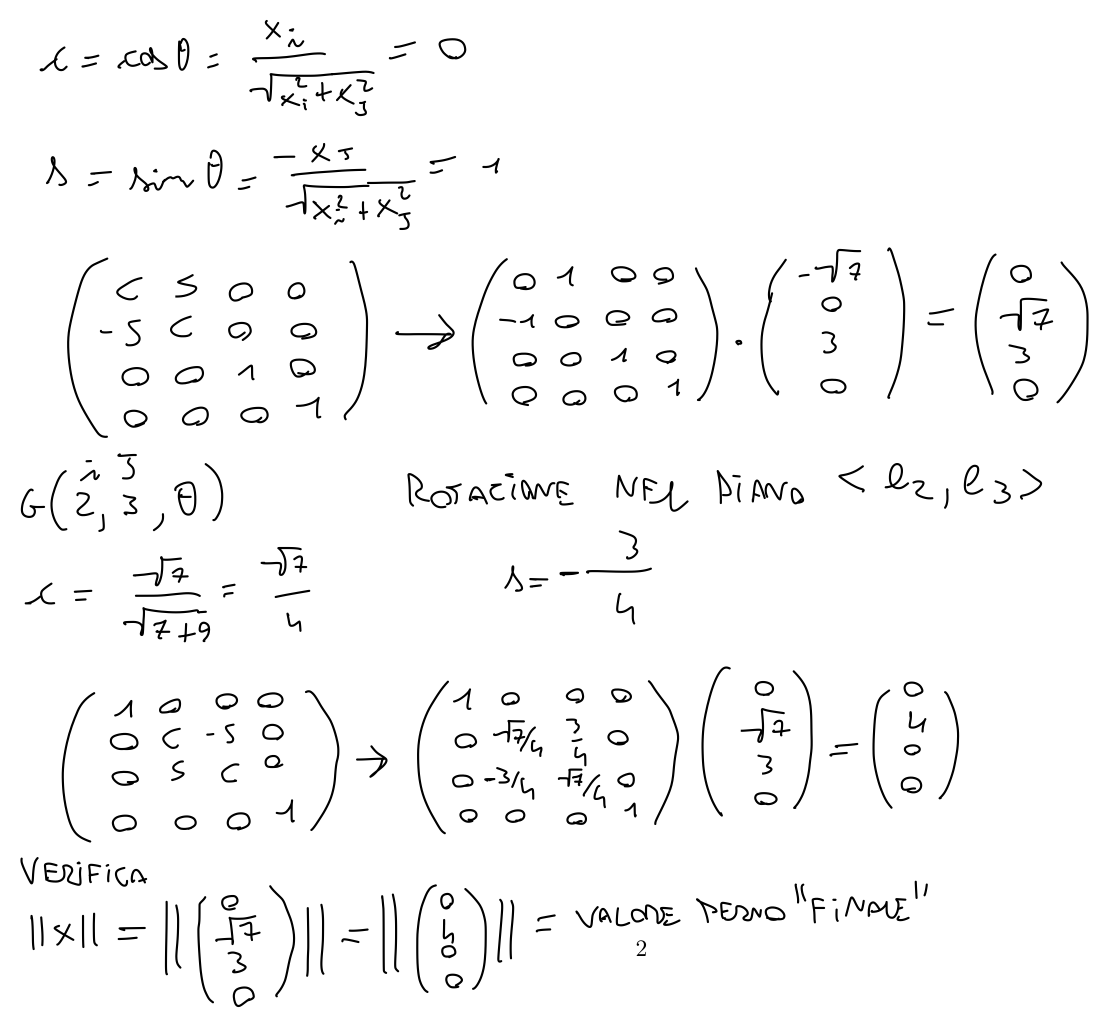 c = cos θ = x_i / √(x_i² + x_J²) = 0
s = sin θ = -x_J / √(x_i² + x_J²) = 1
( c s 0 0 ; -s c 0 0 ; 0 0 1 0 ; 0 0 0 1 ) → ( 0 1 0 0 ; -1 0 0 0 ; 0 0 1 0 ; 0 0 0 1 ) · ( -√7 ; 0 ; 3 ; 0 ) = ( 0 ; √7 ; 3 ; 0 )
i J
G(2, 3, θ) ROTAZIONE NEL PIANO < e₂, e₃ >
c = √7 / √(7+9) = √7 / 4 s = - 3 / 4
( 1 0 0 0 ; 0 c -s 0 ; 0 s c 0 ; 0 0 0 1 ) → ( 1 0 0 0 ; 0 √7/4 3/4 0 ; 0 -3/4 √7/4 0 ; 0 0 0 1 ) ( 0 ; √7 ; 3 ; 0 ) = ( 0 ; 4 ; 0 ; 0 )
VERIFICA
||x|| = || ( 0 ; √7 ; 3 ; 0 ) || = || ( 0 ; 4 ; 0 ; 0 ) || = VALORE PERNO "FINALE"
2